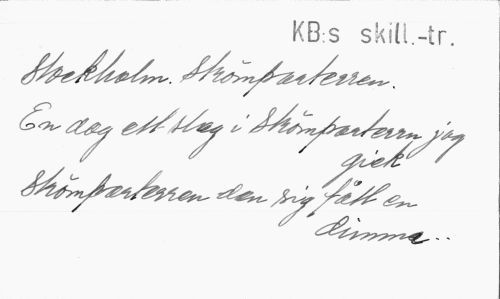 KB:s skill.-tr.
Stockholm. Strömparterren.
En dag ett slag i Strömparterrn jag
gick
Strömparterren den sig fått en
dimma..